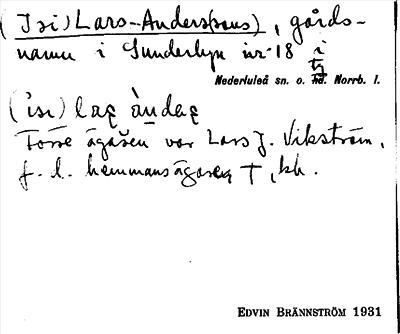 (Isi) Lars-Anders(sons), gårds-
namn i Sunderbyn nr 18 i
tg
Nederluleå sn. o. hd. Norrb. l.
Förre ägaren var Lars J. Vikström,
f. d. hemmansägaren
EDVIN BRÄNNSTRÖM 1931